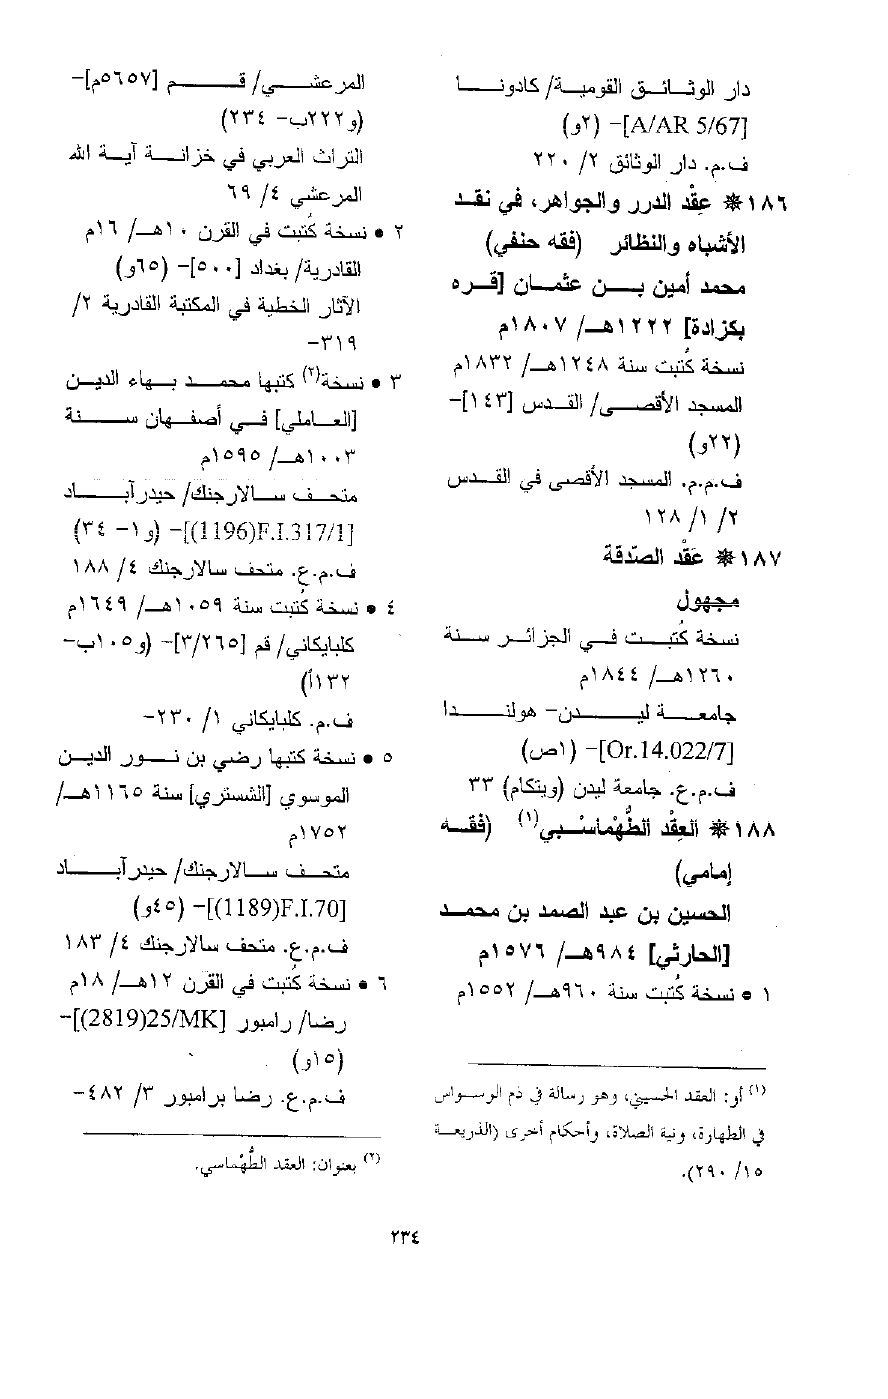 دار الوثائق القومية/ كادونا
[A/AR 5/67]- (٢و)
ف.م. دار الوثائق ٢/ ٢٢٠
١٨٦ ❋ عِقْد الدرر والجواهر، في نقد
الأشباه والنظائر (فقه حنفي)
محمد أمين بن عثمان [قره
بكزادة] ١٢٢٢هـ/ ١٨٠٧م
نسخة كُتبت سنة ١٢٤٨هـ/ ١٨٣٢م
المسجد الأقصى/ القدس [١٤٣]-
(٢٢و)
ف.م.م. المسجد الأقصى في القدس
٢/ ١/ ١٢٨
١٨٧ ❋ عَقْد الصّدقة
مجهول
نسخة كُتبت في الجزائر سنة
١٢٦٠هـ/ ١٨٤٤م
جامعة ليدن- هولندا
[Or.14.022/7]- (١ص)
ف.م.ع. جامعة ليدن (ويتكام) ٣٣
١٨٨ ❋ العِقْد الطُّهْماسْبي(١) (فقه
إمامي)
الحسين بن عبد الصمد بن محمد
[الحارثي] ٩٨٤هـ/ ١٥٧٦م
١ • نسخة كُتبت سنة ٩٦٠هـ/ ١٥٥٢م
(١) أو: العقد الحسيني، وهو رسالة في ذم الوسواس
في الطهارة، ونية الصلاة، وأحكام أخرى (الذريعة
١٥/ ٢٩٠).
المرعشي/ قم [٥٦٥٧م]-
(و٢٢٢ب- ٢٣٤)
التراث العربي في خزانة آية الله
المرعشي ٤/ ٦٩
٢ • نسخة كُتبت في القرن ١٠هـ/ ١٦م
القادرية/ بغداد [٥٠٠]- (٦٥و)
الآثار الخطية في المكتبة القادرية ٢/
٣١٩-
٣ • نسخة(٢) كتبها محمد بهاء الدين
[العاملي] في أصفهان سنة
١٠٠٣هـ/ ١٥٩٥م
متحف سالارجنك/ حيدرآباد
[(1196)F.I.317/1]- (و١- ٣٤)
ف.م.ع. متحف سالارجنك ٤/ ١٨٨
٤ • نسخة كُتبت سنة ١٠٥٩هـ/ ١٦٤٩م
كلبايكاني/ قم [٣/٢٦٥]- (و١٠٥ب-
١٣٢أ)
ف.م. كلبايكاني ١/ ٢٣٠-
٥ • نسخة كتبها رضي بن نور الدين
الموسوي [الشستري] سنة ١١٦٥هـ/
١٧٥٢م
متحف سالارجنك/ حيدرآباد
[(1189)F.I.70]- (٤٥و)
ف.م.ع. متحف سالارجنك ٤/ ١٨٣
٦ • نسخة كُتبت في القرن ١٢هـ/ ١٨م
رضا/ رامبور [(2819)25/MK]-
(١٥و)
ف.م.ع. رضا برامبور ٣/ ٤٨٢-
(٢) بعنوان: العقد الطُّهْماسي.
٢٣٤